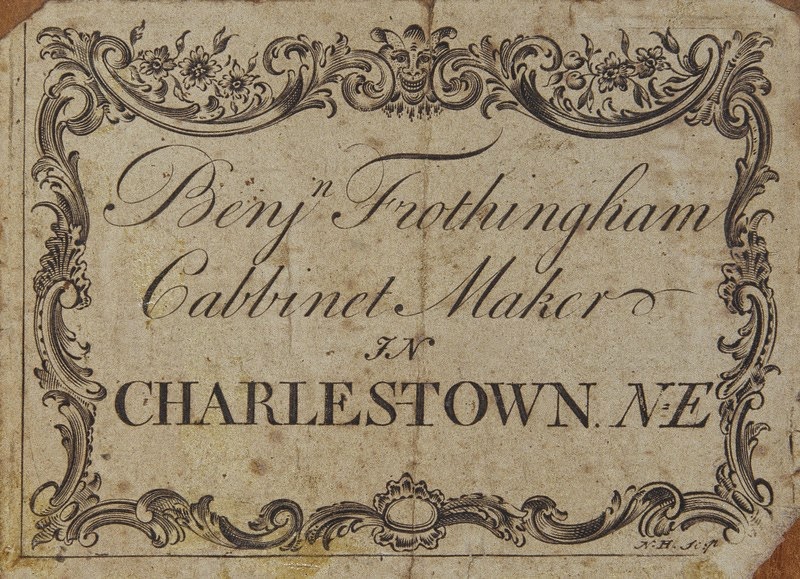 Benjⁿ Frothingham
Cabbinet Maker
IN
CHARLESTOWN. N=E
N.H. Scp